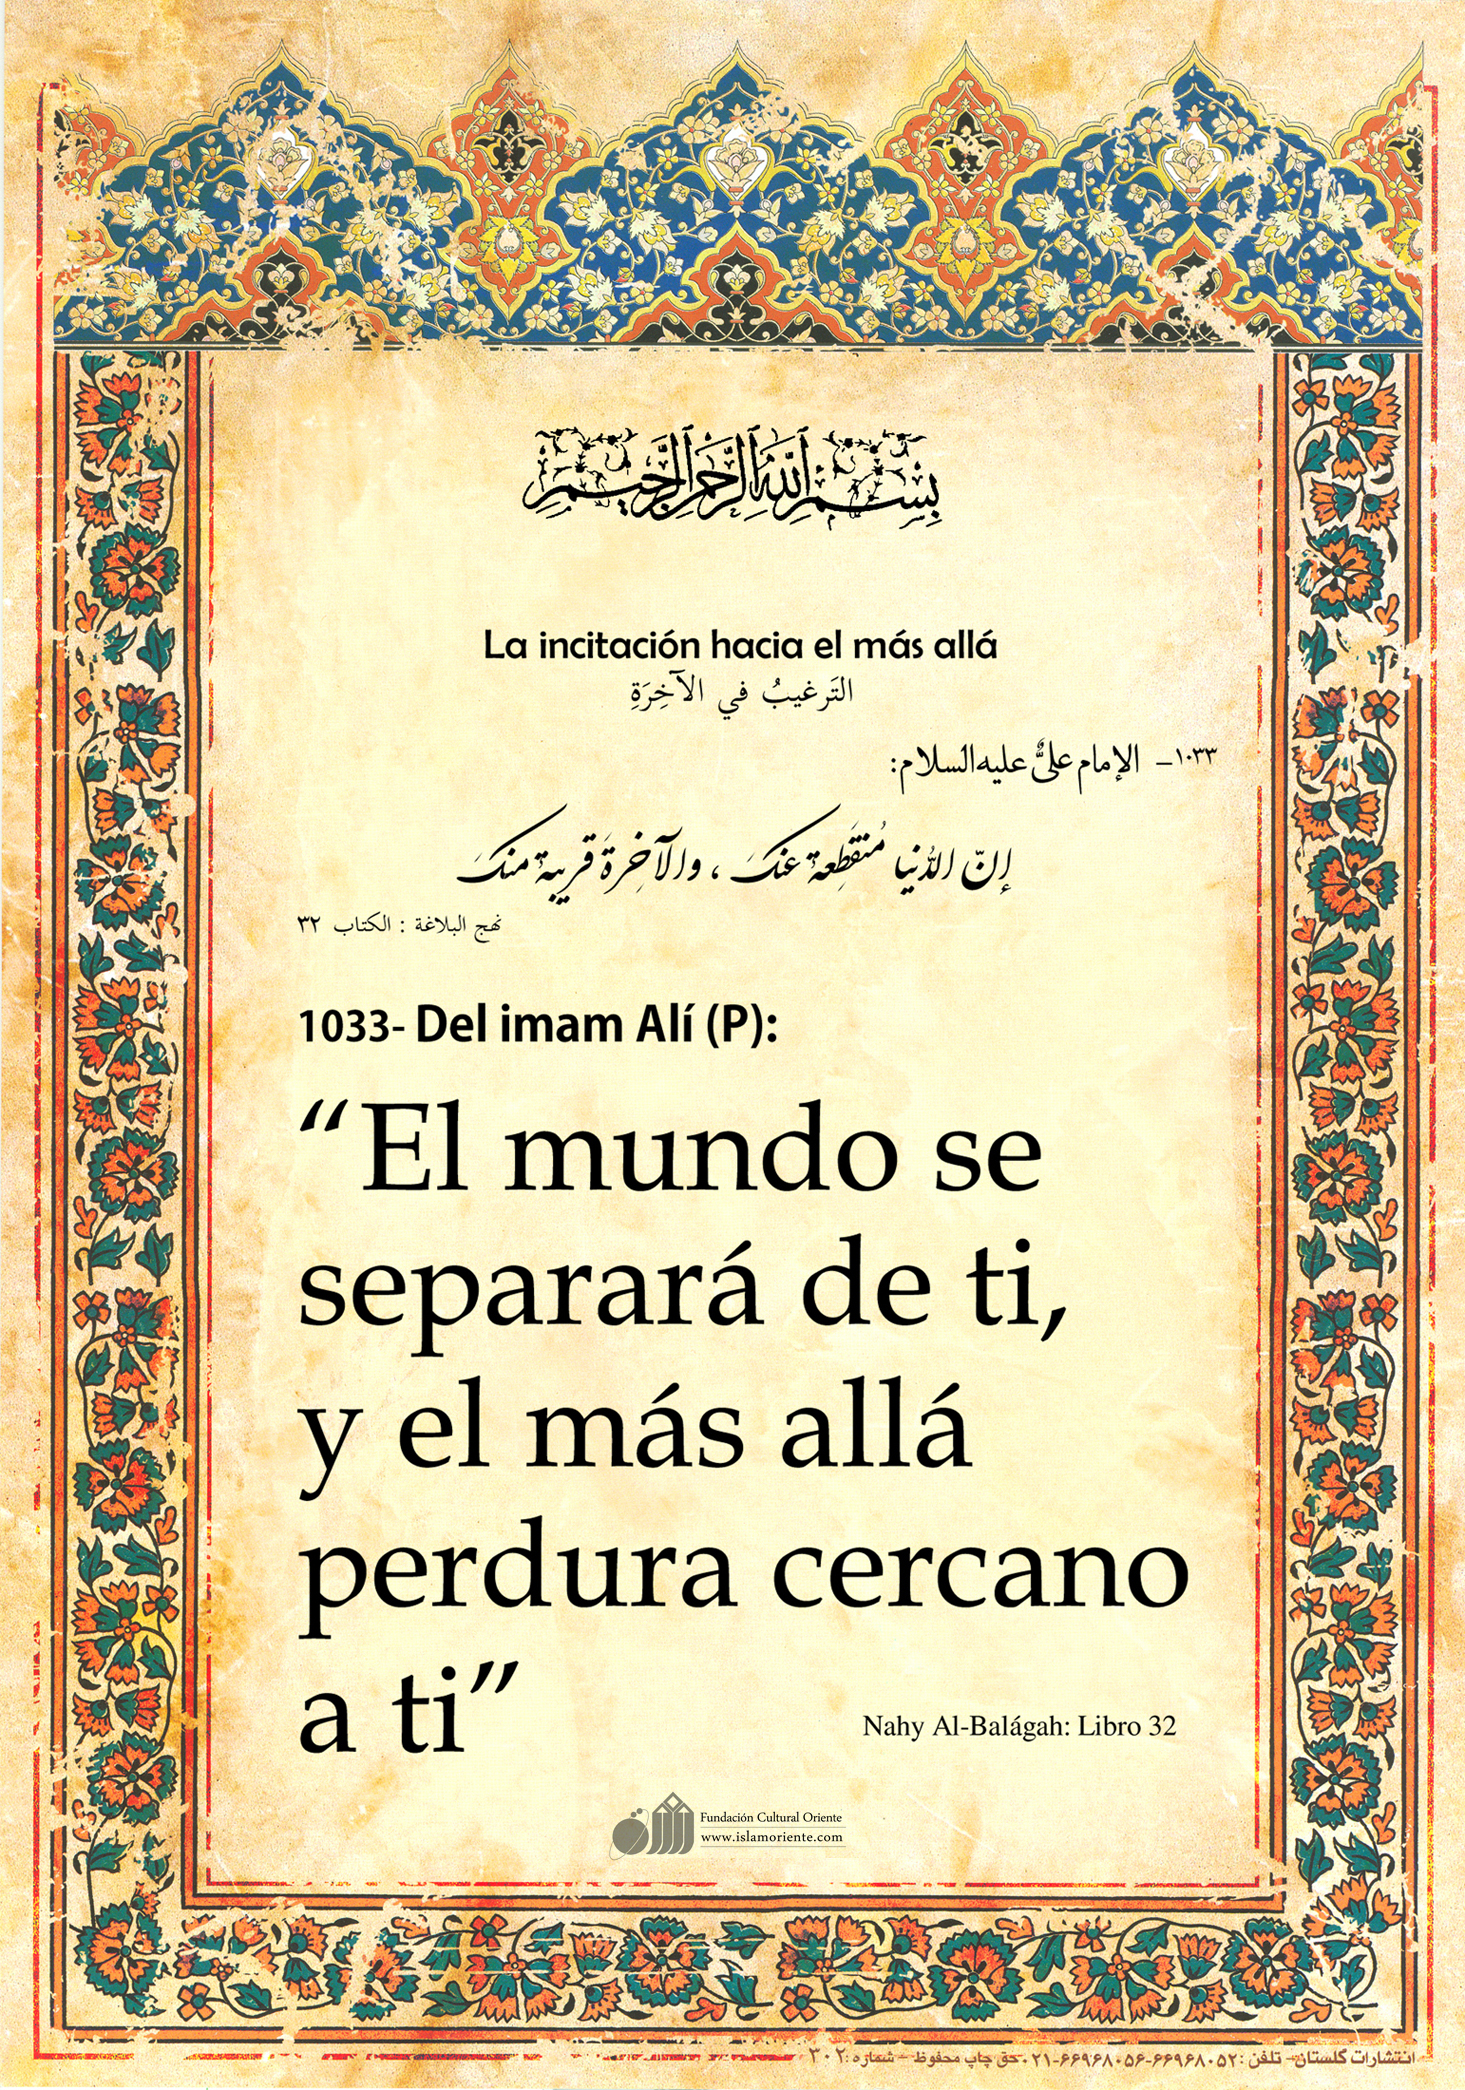 بِسْمِ اللَّهِ الرَّحْمَٰنِ الرَّحِيمِ
La incitación hacia el más allá
التَرغيبُ في الآخِرَةِ
١٠٣٣- الإمام عليٌّ عليه السلام:
إنّ الدُنيا مُنقَطِعةٌ عنكَ ، والآخِرةَ قريبةٌ منكَ
نهج البلاغة : الكتاب ٣٢
1033- Del imam Alí (P):
“El mundo se
separará de ti,
y el más allá
perdura cercano
a ti”
Nahy Al-Balágah: Libro 32
Fundación Cultural Oriente
www.islamoriente.com
انتشارات گلستان- تلفن : ۶۶۹۶۸۰۵۲-۶۶۹۶۸۰۵۶-۰۲۱ حق چاپ محفوظ - شماره : ۳۰۲